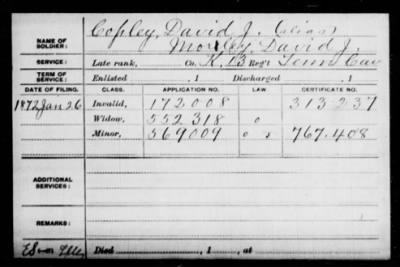 NAME OF SOLDIER: Copley, David J. (alias)
Mosley, David J.
SERVICE: Late rank, Co. K, 13 Reg't Tenn Cav
TERM OF SERVICE: Enlisted , 1 Discharged , 1
DATE OF FILING. CLASS. APPLICATION NO. LAW. CERTIFICATE NO.
1872 Jan 26 Invalid, 172008 313237
Widow, 552318 o
Minor, 569009 o 767.408
ADDITIONAL SERVICES:
REMARKS:
Died , 1 , at